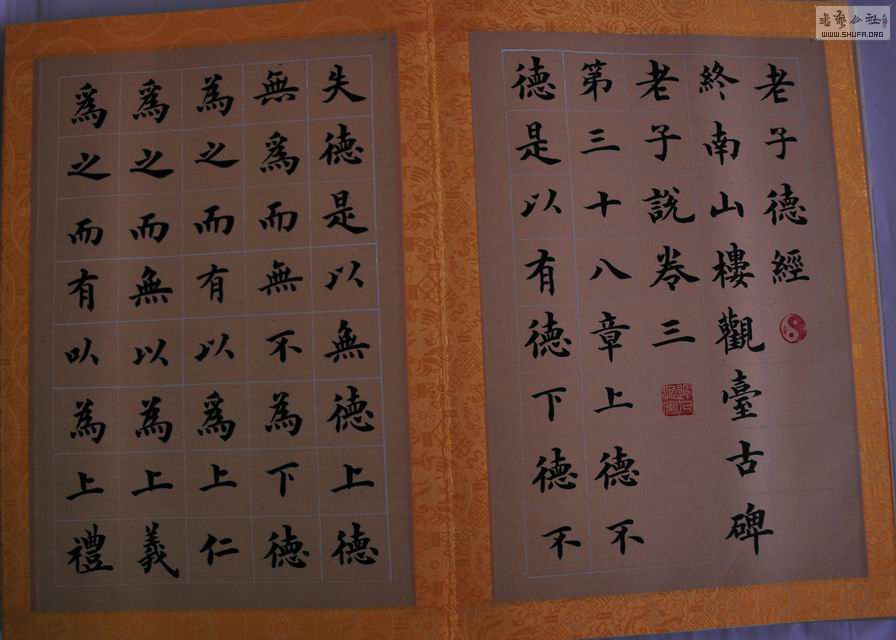 老子德經
終南山樓觀臺古碑
老子說卷三
第三十八章上德不
德是以有德下德不
失德是以無德上德
無爲而無不為下德
為之而有以爲上仁
爲之而無以為上義
爲之而有㕥為上禮
WWW.SHUFA.ORG